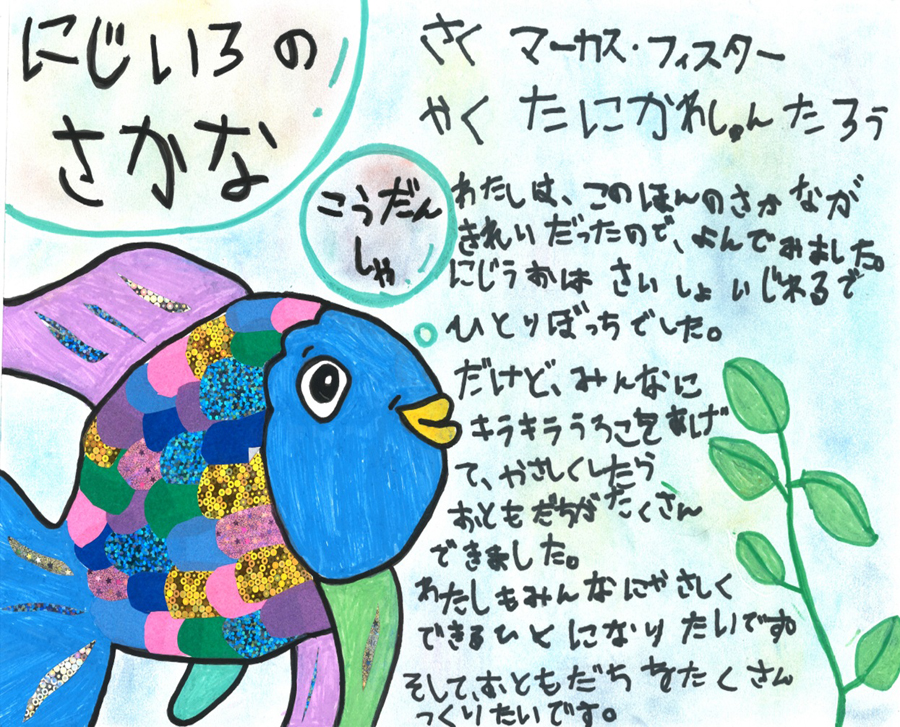 にじいろの
さかな
さく マーカス・フィスター
やく たにかわしゅんたろう
こうだん
しゃ
わたしは、このほんのさかなが
きれいだったので、よんでみました。
にじうおは さいしょ いじわるで
ひとりぼっちでした。
だけど、みんなに
キラキラうろこをあげ
て、やさしくしたら
おともだちがたくさん
できました。
わたしもみんなにやさしく
できるひとになりたいです。
そして、おともだちをたくさん
つくりたいです。